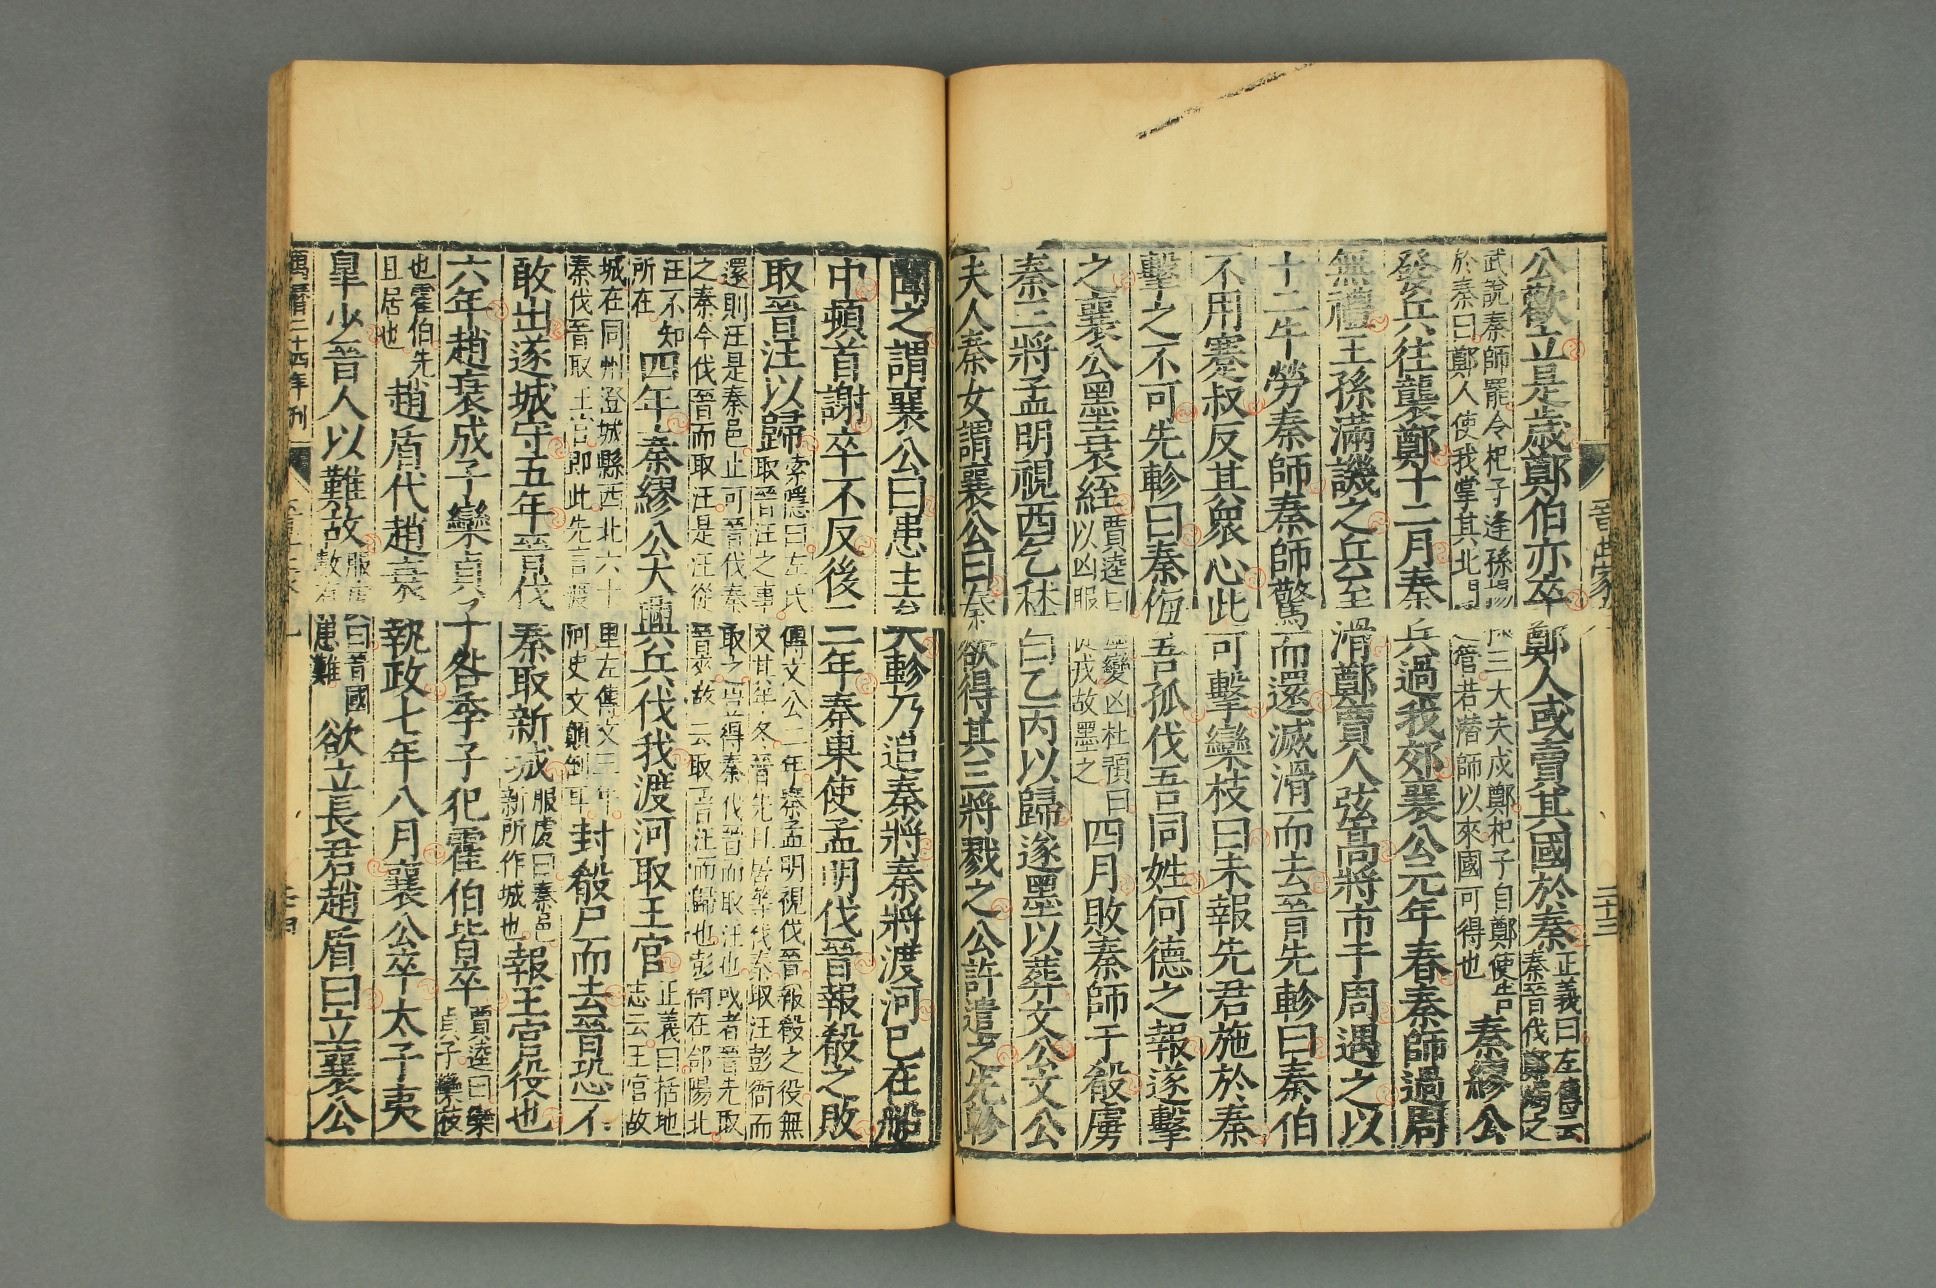 公歡立是歲鄭伯亦卒鄭人或賣其國於秦正義曰左傳云秦晉伐鄭燭之
武說秦師罷令杞子逢孫楊孫三大夫戍鄭杞子自鄭使告於秦曰鄭人使我掌其北門之管若潛師以來國可得也秦繆公
發兵往襲鄭十二月秦兵過我郊襄公元年春秦師過周
無禮王孫滿譏之兵至滑鄭賈人弦高將市于周遇之以
十二牛勞秦師秦師驚而還滅滑而去晉先軫曰秦伯
不用蹇叔反其衆心此可擊欒枝曰未報先君施於秦
擊之不可先軫曰秦侮吾孤伐吾同姓何德之報遂擊
之襄公墨衰絰賈逵曰墨變凶杜預曰以凶服從戎故墨之四月敗秦師于殽虜
秦三將孟明視西乞秫白乙丙以歸遂墨以葬文公文公
夫人秦女謂襄公曰秦欲得其三將戮之公許遣之先軫
聞之謂襄公曰患生矣軫乃追秦將秦將渡河已在船
中頓首謝卒不反後三年秦果使孟明伐晉報殽之敗
取晉汪以歸索隱曰左氏傳文公二年秦孟明視伐晉報殽之役無取晉汪之事又其年冬晉先且居等伐秦取汪彭衙而
還則汪是秦邑止可晉伐秦取之豈得秦伐晉而取汪也或者晉先取之秦今伐晉而取汪是汪從晉來故云取晉汪而歸也彭衙在郃陽北
汪不知所在四年秦繆公大興兵伐我渡河取王官正義曰括地志云王官故
城在同州澄城縣西北六十里左傳文三年秦伐晉取王官即此先言渡河史文顛倒耳封殽尸而去晉恐不
敢出遂城守五年晉伐秦取新城服虔曰秦邑新所作城也報王官役也
六年趙衰成子欒貞子咎季子犯霍伯皆卒賈逵曰欒貞子欒枝
也霍伯先且居也趙盾代趙衰執政七年八月襄公卒太子夷
皐少晉人以難故服虔曰晉國數有患難欲立長君趙盾曰立襄公
萬曆二十四年刊
晉世家
二十三
二十四